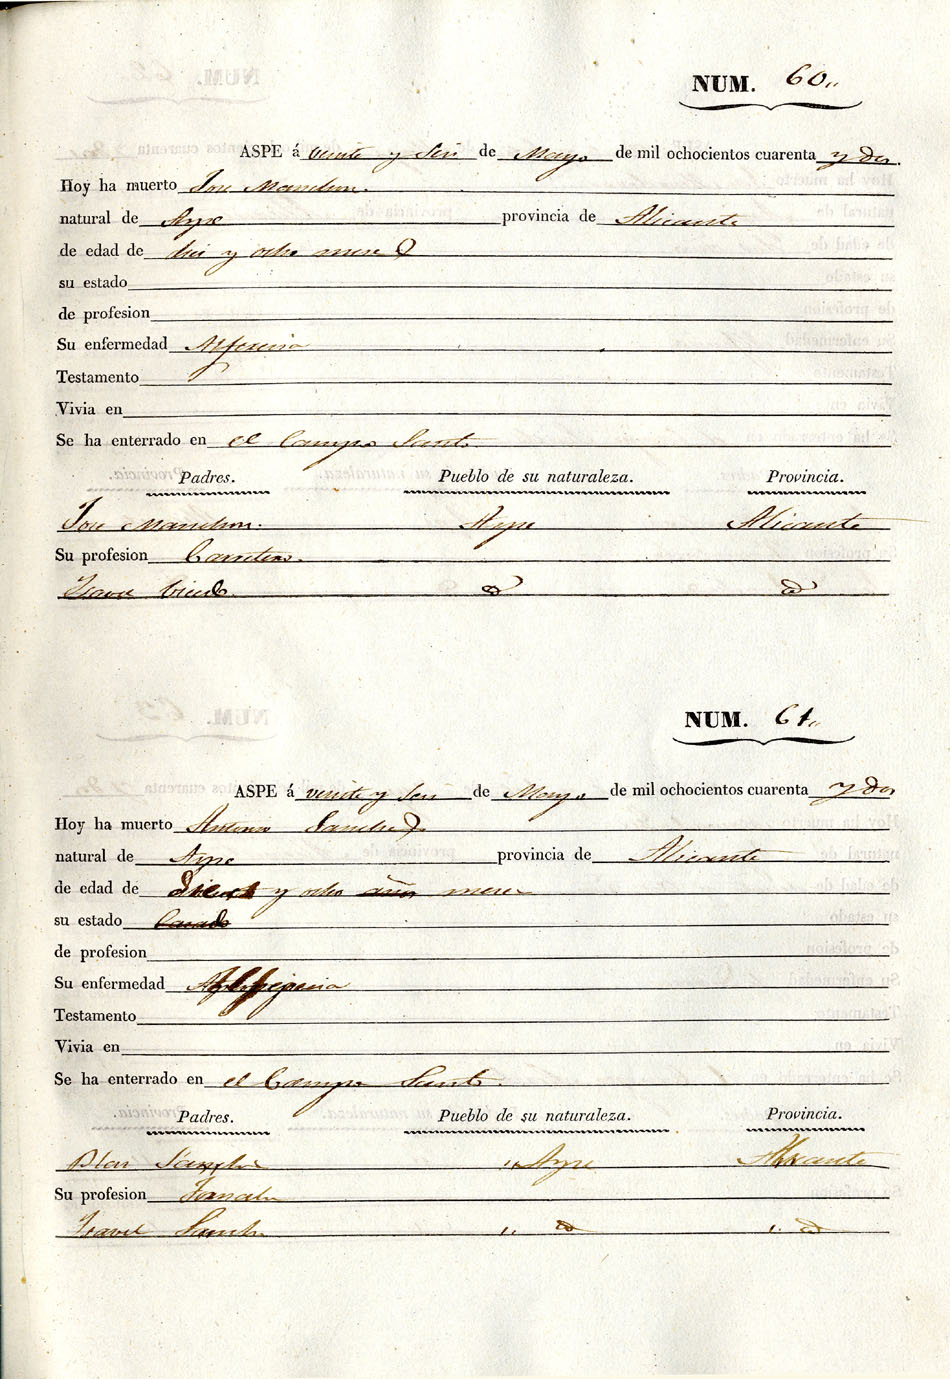 NUM. 60,,
ASPE á veinte y seis de Mayo de mil ochocientos cuarenta y dos.
Hoy ha muerto Jose Manchon.
natural de Aspe provincia de Alicante
de edad de diez y ocho meses
su estado
de profesion
Su enfermedad Alferecia
Testamento
Vivia en
Se ha enterrado en el Campo Santo.
Padres. Pueblo de su naturaleza. Provincia.
Jose Manchon. Aspe Alicante
Su profesion Carretero.
Isavel id id
NUM. 61,,
ASPE á veinte y seis de Mayo de mil ochocientos cuarenta y dos
Hoy ha muerto Antonio Sanchez
natural de Aspe provincia de Alicante
de edad de diez y ocho años meses
su estado Casado
de profesion
Su enfermedad
Testamento
Vivia en
Se ha enterrado en el Campo Santo.
Padres. Pueblo de su naturaleza. Provincia.
Blas Sanchez ,, Aspe Alicante
Su profesion Jornalero
Isavel Sanchez ,, id ,, id